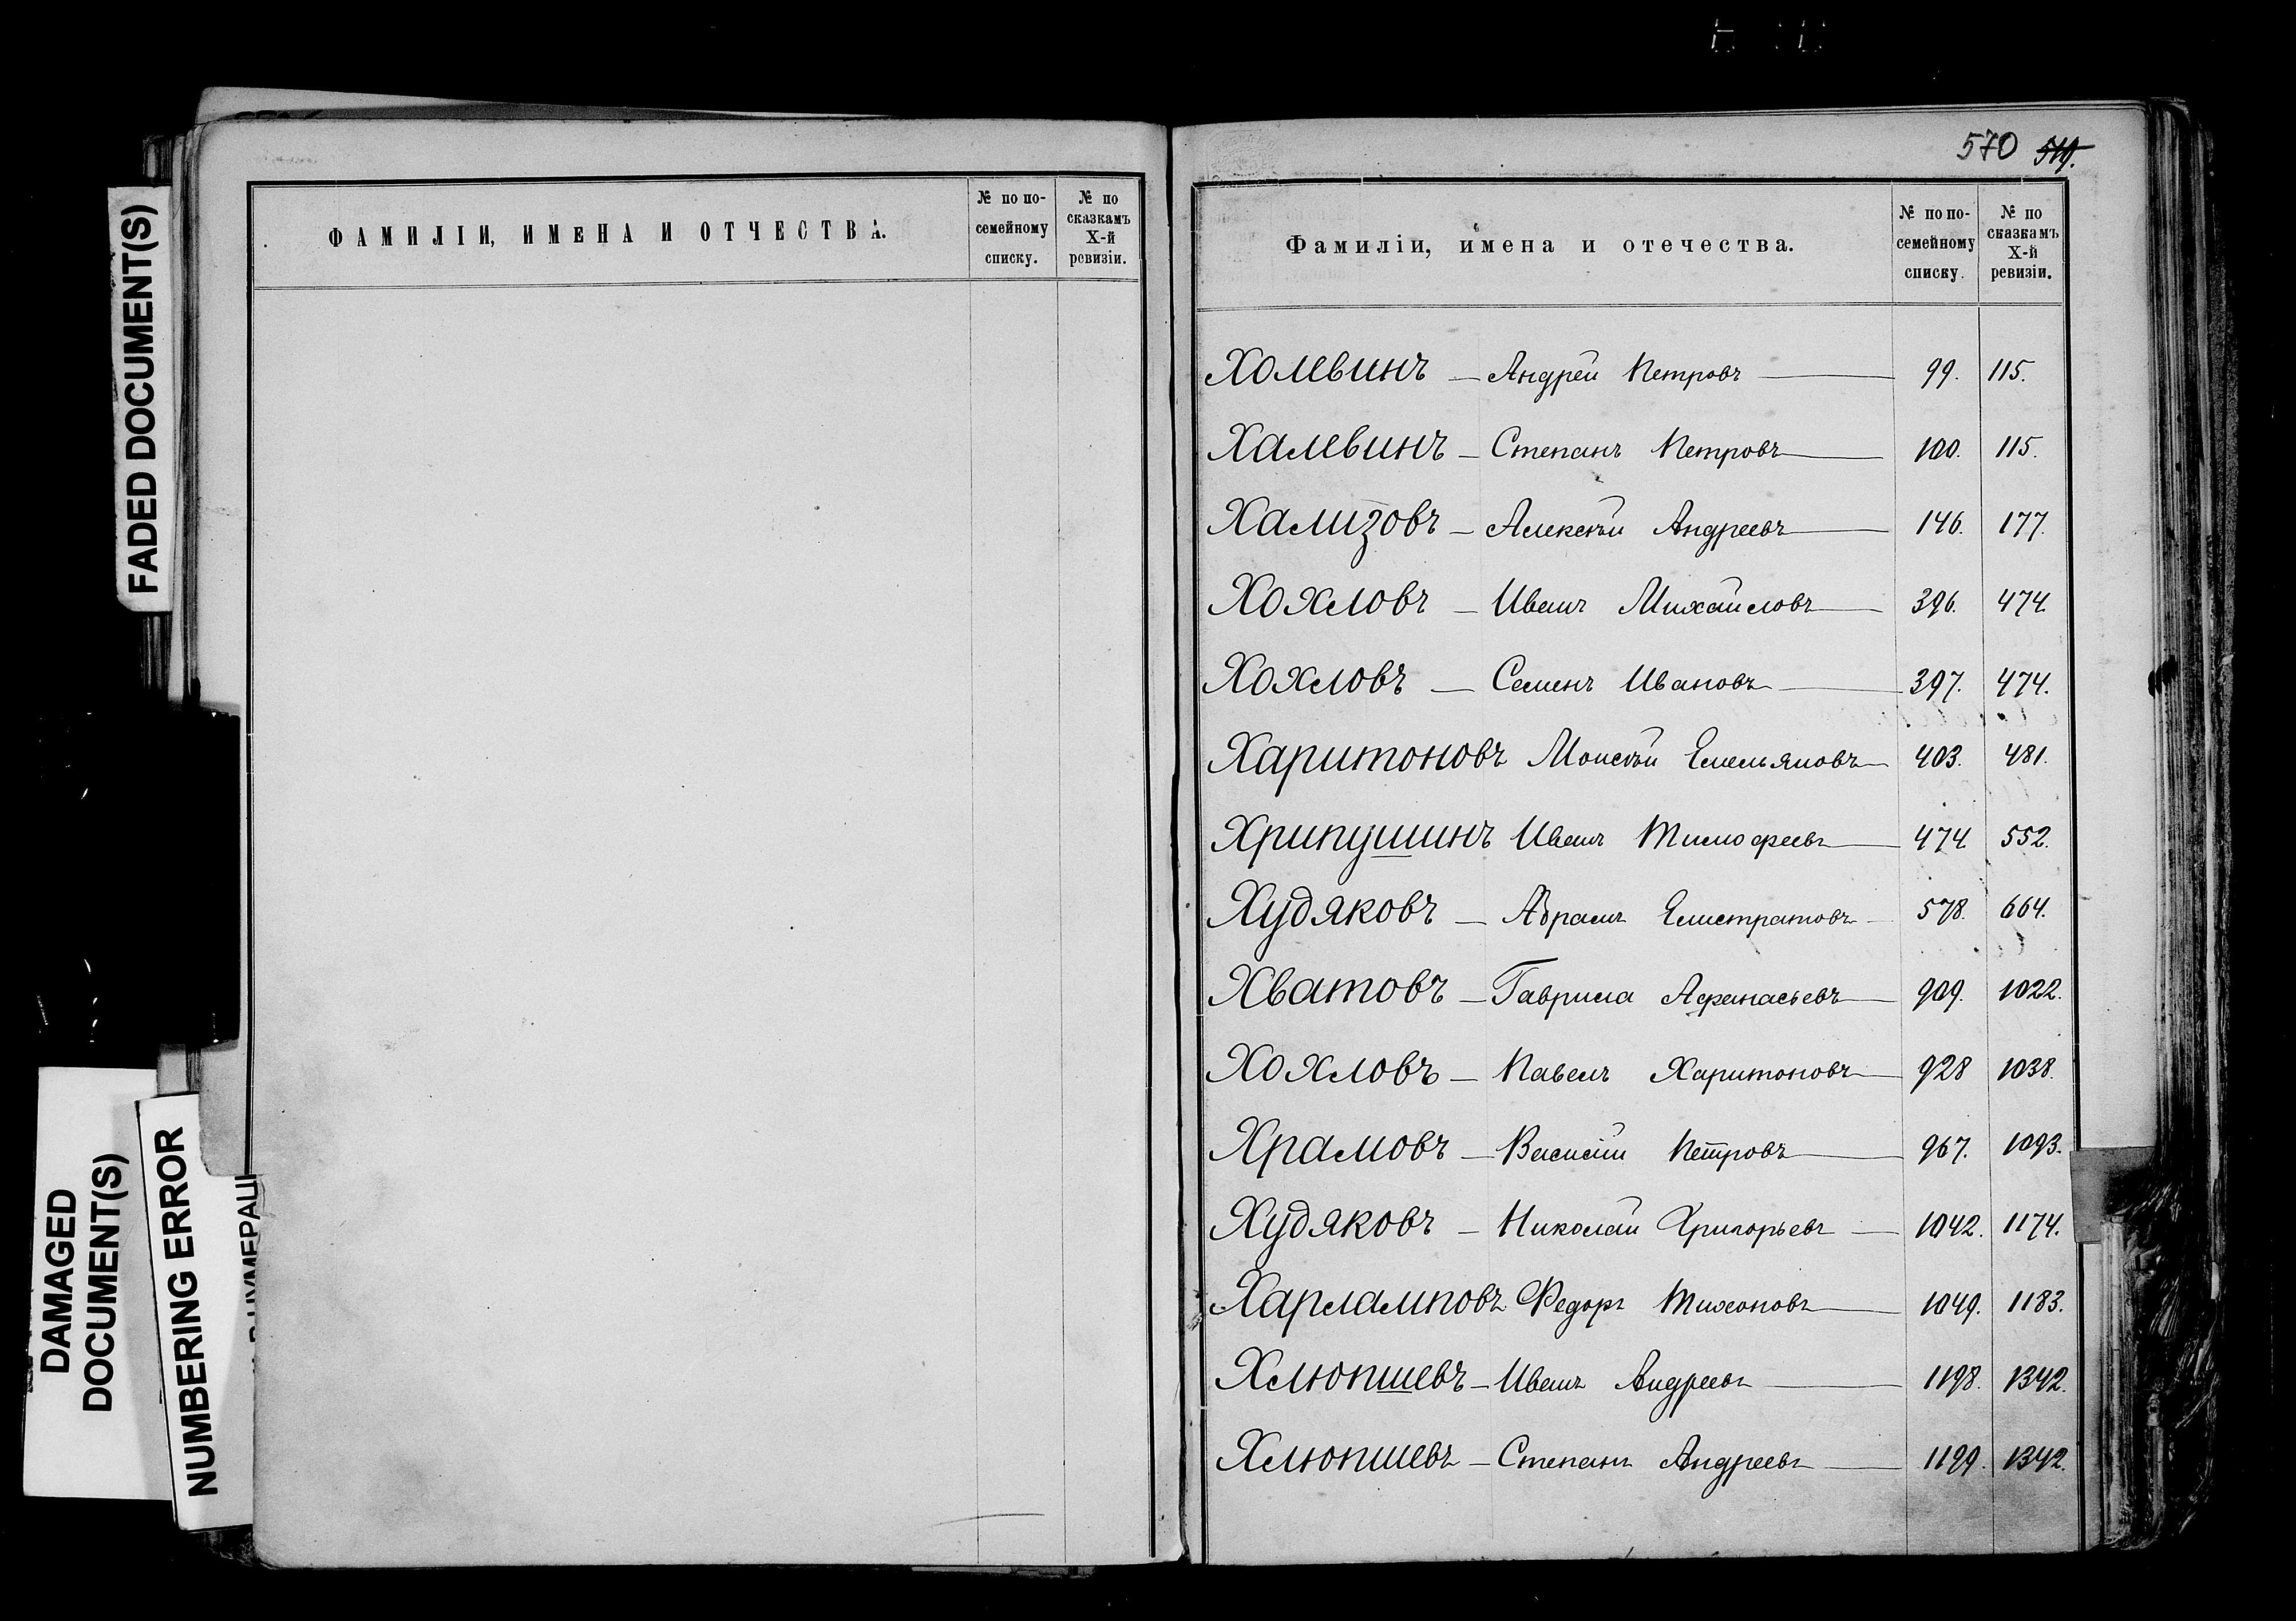 FADED DOCUMENT(S)
DAMAGED
DOCUMENT(S)
NUMBERING ERROR
ФАМИЛІИ, ИМЕНА И ОТЧЕСТВА.
№ по по-
семейному
списку.
№ по
сказкамъ
X-й
ревизіи.
570
Фамиліи, имена и отечества.
№ по по-
семейному
списку.
№ по
сказкамъ
X-й
ревизіи.
Холевинъ — Андрей Петровъ — 99. 115.
Халевинъ — Степанъ Петровъ — 100. 115.
Хализовъ — Алексѣй Андреевъ — 146. 177.
Хохловъ — Иванъ Михайловъ — 396. 474.
Хохловъ — Семенъ Ивановъ — 397. 474.
Харитоновъ Моисѣй Емельяновъ — 403. 481.
Хрипушинъ Иванъ Тимофеевъ — 474 552.
Худяковъ — Абрамъ Елистратовъ — 578. 664.
Хватовъ — Гаврила Афанасьевъ — 909. 1022.
Хохловъ — Павелъ Харитоновъ — 928 1038.
Храмовъ — Василій Петровъ — 967. 1093.
Худяковъ — Николай Григорьевъ — 1042. 1174.
Харламповъ Федоръ Тихоновъ — 1049. 1183.
Хлюпшевъ — Иванъ Андреевъ — 1198. 1342.
Хлюпшевъ — Степанъ Андреевъ — 1199. 1342.